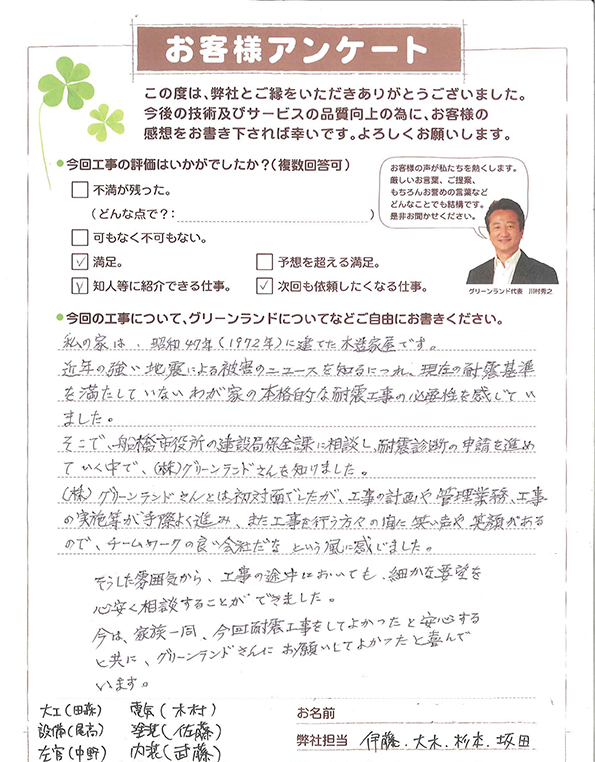 お客様アンケート
この度は、弊社とご縁をいただきありがとうございました。
今後の技術及びサービスの品質向上の為に、お客様の
感想をお書き下されば幸いです。よろしくお願いします。
●今回工事の評価はいかがでしたか?(複数回答可)
不満が残った。
(どんな点で?: )
可もなく不可もない。
満足。
予想を超える満足。
知人等に紹介できる仕事。
次回も依頼したくなる仕事。
お客様の声が私たちを動くします。
厳しいお言葉、ご提案、
もちろんお誉めの言葉など
どんなことでも結構です。
是非お聞かせください。
グリーンランド代表 川村秀之
●今回の工事について、グリーンランドについてなどご自由にお書きください。
私の家は、昭和47年(1972年)に建てた木造家屋です。
近年の強い地震による被害のニュースを知るにつれ、現在の耐震基準
を満たしていないわが家の本格的な耐震工事の必要性を感じてい
ました。
そこで、船橋市役所の建設局保全課に相談し、耐震診断の申請を進め
ていく中で、(株)グリーンランドさんを知りました。
(株)グリーンランドさんとは初対面でしたが、工事の計画や管理業務、工事
の実施等が手際よく進み、また工事を行う方々の間に笑い声や笑顔がある
ので、チームワークの良い会社だな という風に感じました。
そうした雰囲気から、工事の途中においても、細かな要望を
心安く相談することができました。
今は、家族一同、今回耐震工事をしてよかったと安心する
と共に、グリーンランドさんにお願いしてよかったと喜んで
います。
大工(田森) 電気(木村)
設備(尾高) 塗装(佐藤)
左官(中野) 内装(武藤)
お名前
弊社担当 伊藤.大木.杉本.坂田